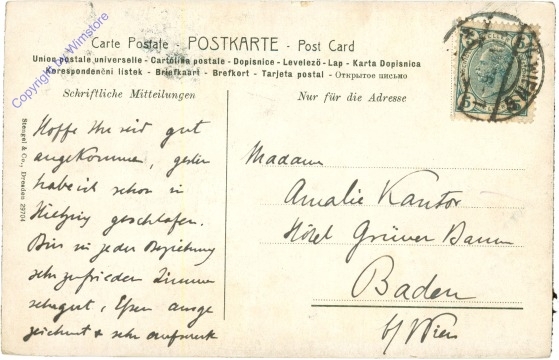 Carte Postale - POSTKARTE - Post Card
Union postale universelle - Cartolina postale - Dopisnice - Levelező-Lap - Karta Dopisnica
Korespondenční lístek - Briefkaart - Brefkort - Tarjeta postal - Открытое письмо
Schriftliche Mitteilungen
Nur für die Adresse
Copyright by Wimstore
Stengel & Co., Dresden 29704
Hoffe Ihr seid gut
angekommen, gestern
habe ich schon in
Hietzing geschlafen.
Bin in jeder Beziehung
sehr zufrieden Zimmer
sehr gut, Essen ausge
zeichnet & sehr aufmerk
Madame
Amalie Kantor
Hôtel Grüner Baum
Baden
b/ Wien
5
5
WIEN